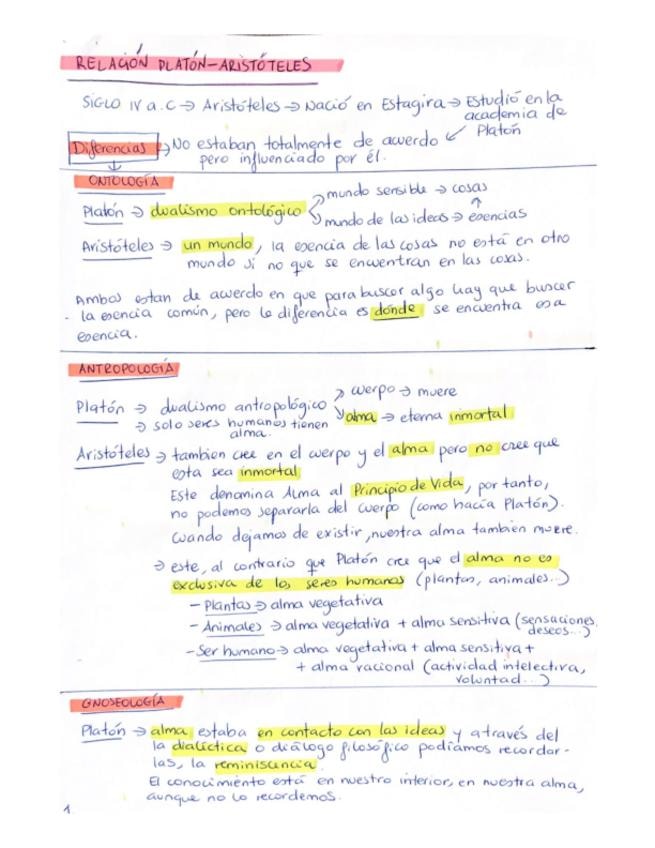 RELACIÓN PLATÓN-ARISTÓTELES
SIGLO IV a.C → Aristóteles → Nació en Estagira → Estudió en la
academia de
Platón
Diferencias → No estaban totalmente de acuerdo
pero influenciado por él.
ONTOLOGÍA
Platón → dualismo ontológico
mundo sensible → cosas
mundo de las ideas → esencias
Aristóteles → un mundo, la esencia de las cosas no está en otro
mundo sí no que se encuentran en las cosas.
Ambos estan de acuerdo en que para buscar algo hay que buscar
la esencia común, pero la diferencia es dónde se encuentra esa
esencia.
ANTROPOLOGÍA
Platón → dualismo antropológico
cuerpo → muere
alma → eterna inmortal
→ solo seres humanos tienen
alma.
Aristóteles → tambien cree en el cuerpo y el alma pero no cree que
esta sea inmortal
Este denomina Alma al Principio de Vida, por tanto,
no podemos separarla del cuerpo (como hacía Platón).
Cuando dejamos de existir, nuestra alma también muere.
→ este, al contrario que Platón cree que el alma no es
exclusiva de los seres humanos (plantas, animales...)
- Plantas → alma vegetativa
- Animales → alma vegetativa + alma sensitiva (sensaciones,
deseos...)
- Ser humano → alma vegetativa + alma sensitiva +
+ alma racional (actividad intelectiva,
voluntad...)
GNOSEOLOGÍA
Platón → alma estaba en contacto con las ideas y a través del
la dialéctica o diálogo filosófico podíamos recordar-
las, la reminiscencia.
El conocimiento está en nuestro interior, en nuestra alma,
aunque no lo recordemos.
1